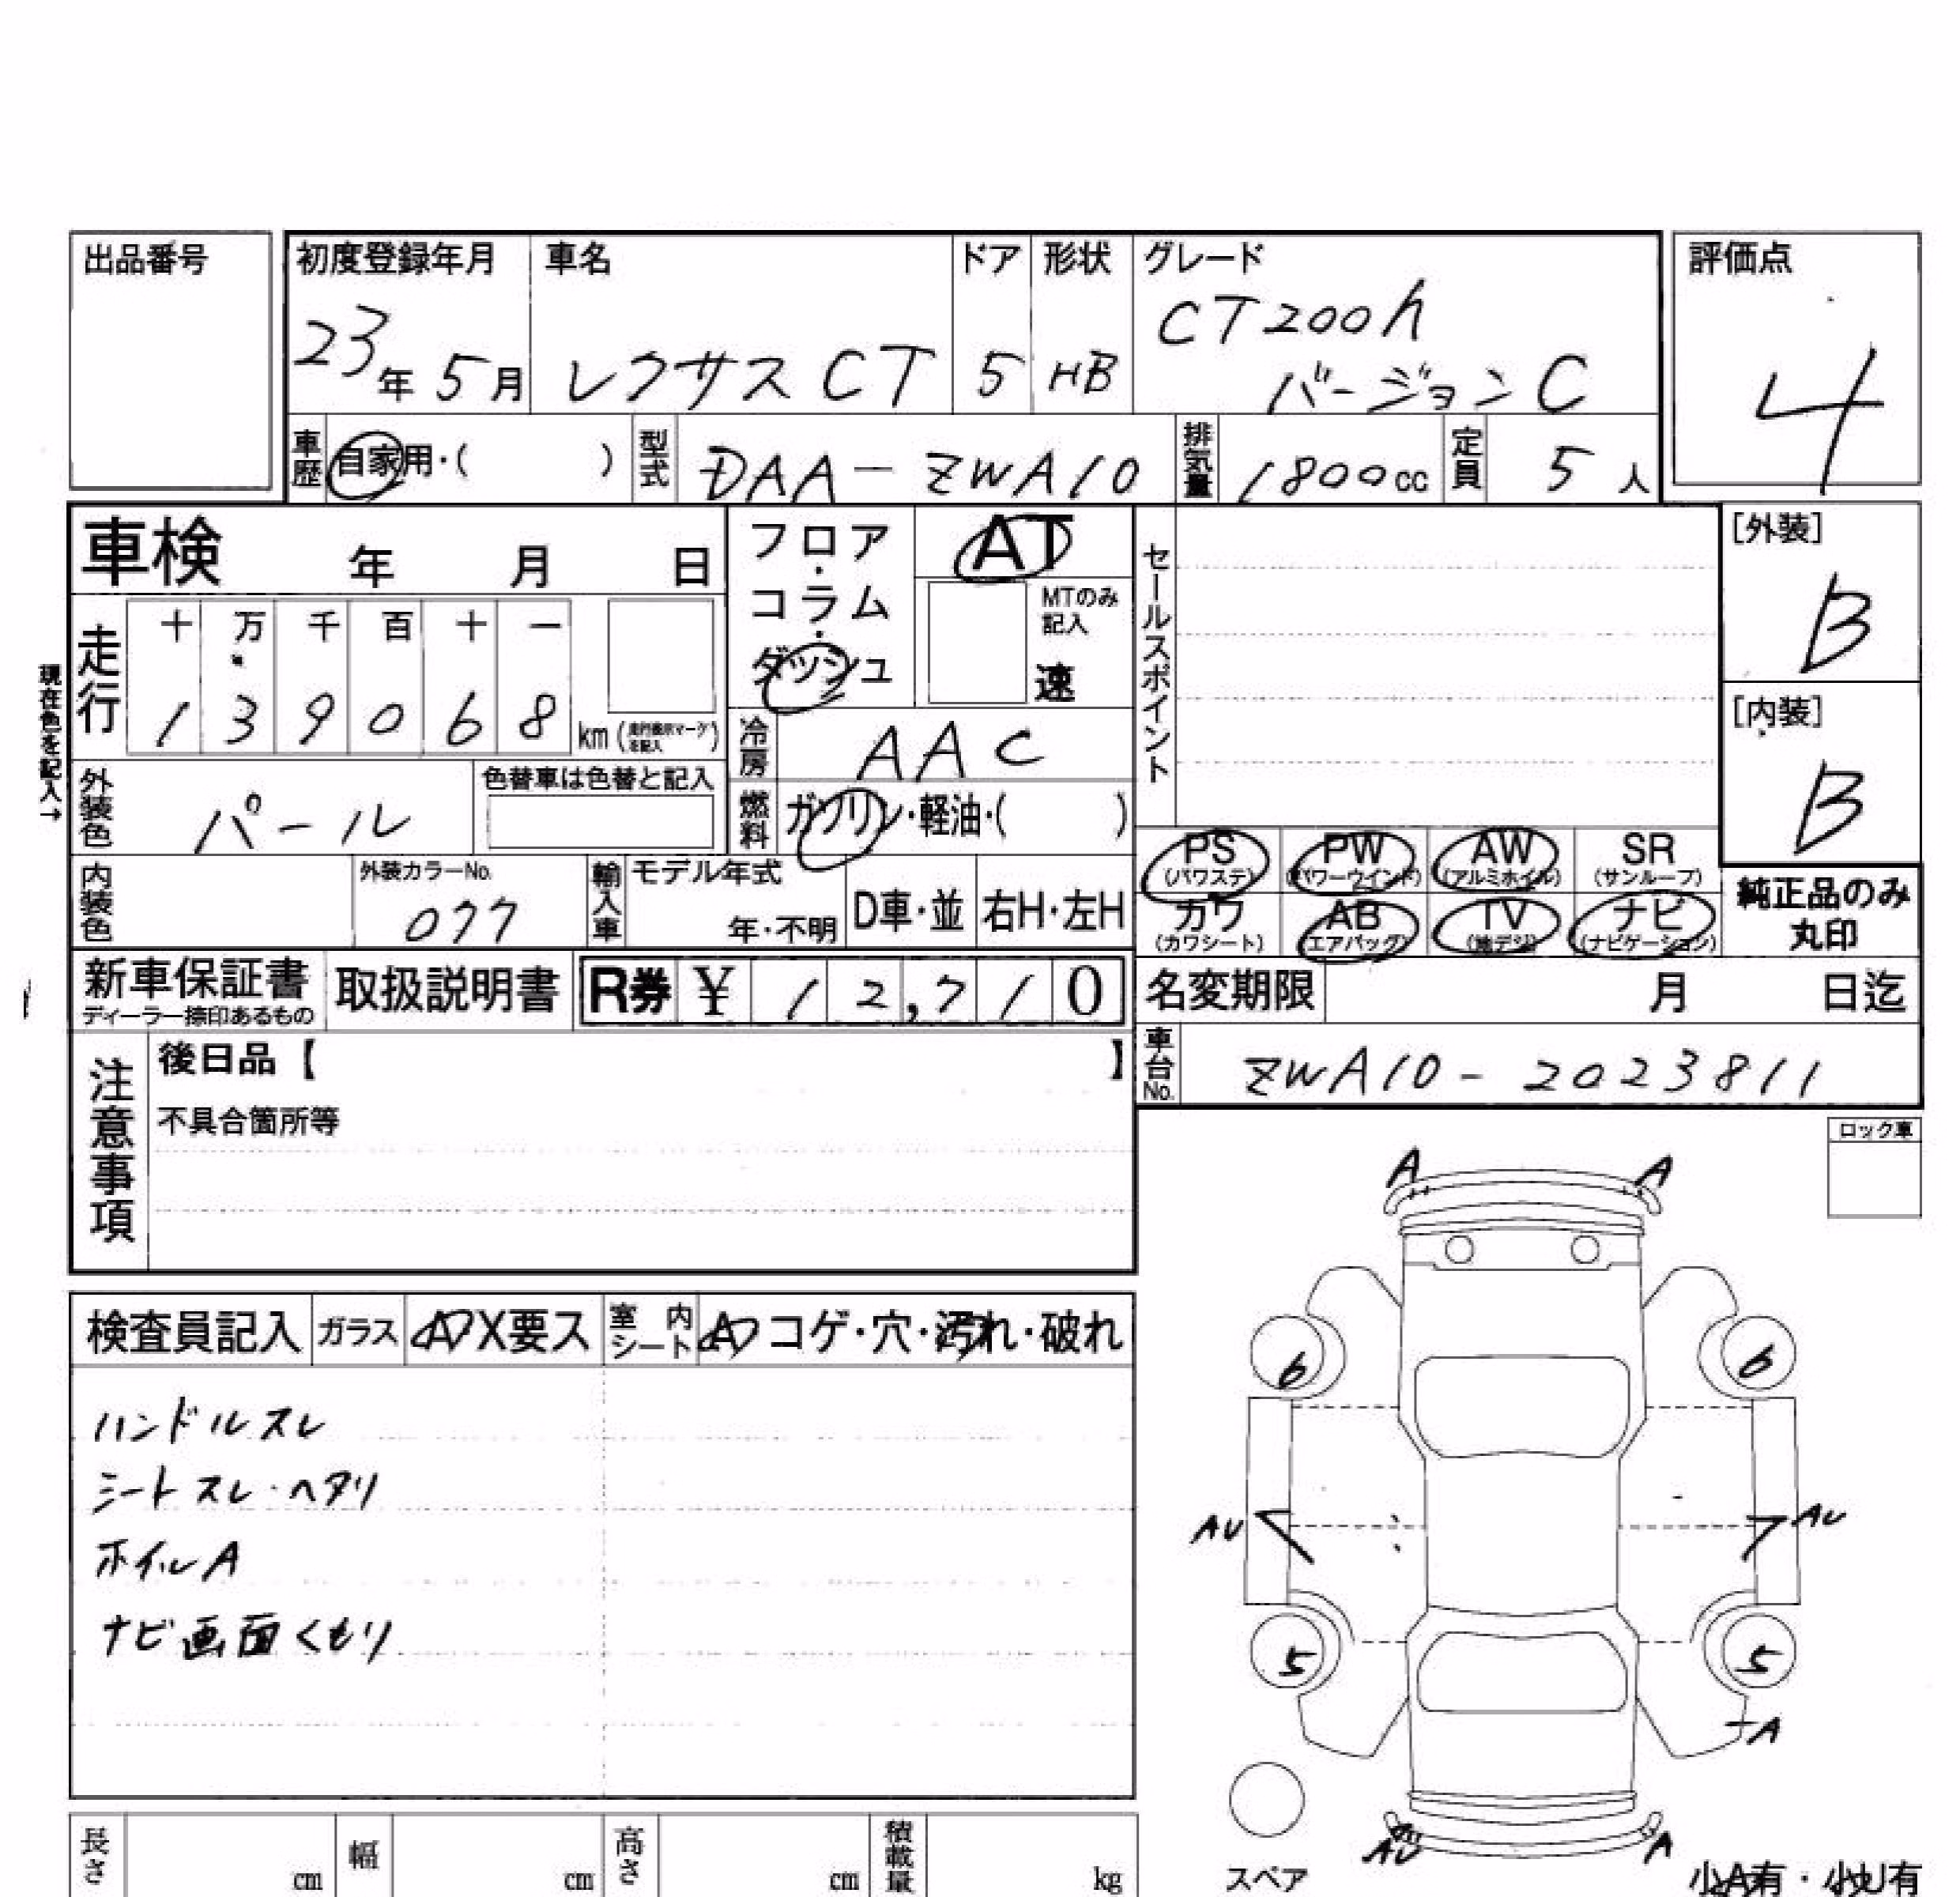 出品番号
初度登録年月 車名 ドア 形状 グレード 評価点
23年5月 レクサス CT 5 HB CT200h
バージョンC
4
車歴 自家用・( ) 型式 DAA-ZWA10 排気量 1800cc 定員 5人
車検 年 月 日
フロア・コラム・ダッシュ
AT
MTのみ記入
速
セールスポイント
[外装]
B
[内装]
B
現在色を記入→
走行 十 万 千 百 十 一
1 3 9 0 6 8 km
冷房 AAC
外装色 パール 色替車は色替と記入
燃料 ガソリン・軽油・( )
PS (パワステ) PW (パワーウインド) AW (アルミホイル) SR (サンルーフ)
カワ (カワシート) AB (エアバッグ) TV (地デジ) ナビ (ナビゲーション)
純正品のみ
丸印
内装色 外装カラーNo. 077 輸入車 モデル年式 年・不明 D車・並 右H・左H
新車保証書 取扱説明書 R券 ¥ 12,710
ディーラー捺印あるもの
名変期限 月 日迄
車台No. ZWA10-2023811
注意事項
後日品【 】
不具合箇所等
ロック車
A A
検査員記入 ガラス A X要ス 室内シート A コゲ・穴・汚れ・破れ
6 6
ハンドルスレ
シートスレ・ヘタリ
AU AU
ホイルA
ナビ画面くもり
5 5
A
AU A
長さ cm 幅 cm 高さ cm 積載量 kg
スペア
小A有・小U有